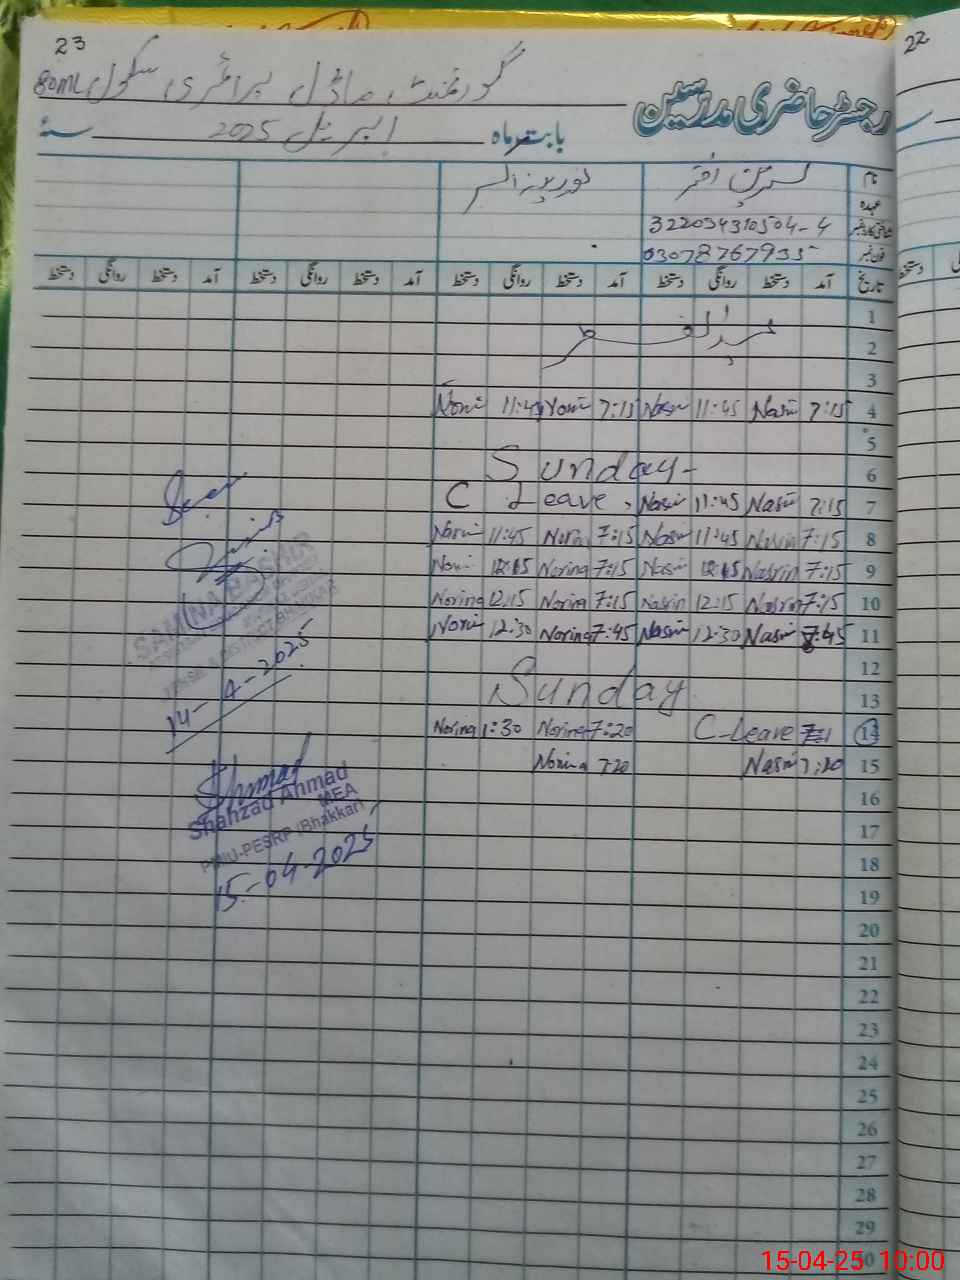 23
22
گورنمنٹ ماڈل پرائمری سکول 80ML
رجسٹر حاضری مدرسین
بابت ماہ اپریل 2025 سنہ
نام نسرین اختر
عہدہ
شناختی کارڈ نمبر 322034310504-4
فون نمبر 03078767935
تاریخ آمد دستخط روانگی دستخط آمد دستخط روانگی دستخط آمد دستخط روانگی دستخط آمد دستخط روانگی دستخط
1
عیدالفطر
2
3
4 7:15 Nasrin 11:45 Nasrin 7:15 Norin 11:45 Norin
5
6 Sunday
7 7:15 Nasrin 11:45 Nasrin C Leave
8 7:15 Nasrin 11:45 Nasrin 7:15 Norin 11:45 Norin
9 7:15 Nasrin 12:15 Nasrin 7:15 Norina 12:15 Norin
10 7:15 Nasrin 12:15 Nasrin 7:15 Norina 12:15 Norina
11 7:45 Nasrin 12:30 Nasrin 7:45 Norina 12:30 Norin
12
13 Sunday
14 C-Leave 7:20 Norina 1:30 Norina
15 7:20 Nasrin 7:20 Norina
SAMINA BASHIR
14-4-2025
Shahzad Ahmad
MEA
PMIU-PESRP (Bhakkar)
15-04-2025
16
17
18
19
20
21
22
23
24
25
26
27
28
29
30
15-04-25 10:00